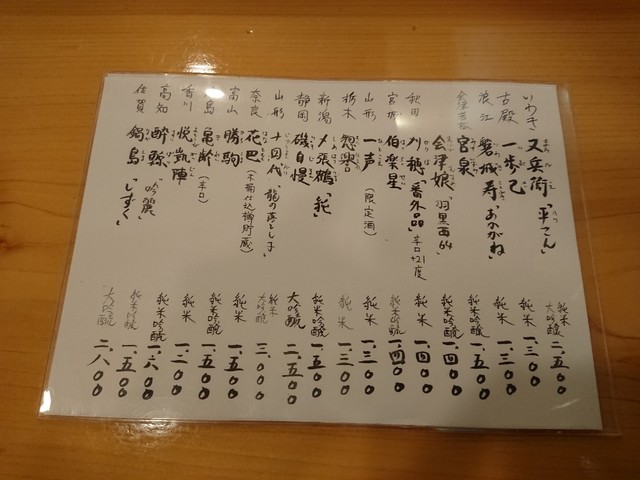 いわき 又兵衛「平さん」 純米大吟醸 二、五〇〇
古殿 一歩己 純米 一、三〇〇
浪江 磐城寿「あかがね」 純米 一、三〇〇
会津若松 宮泉 純米吟醸 一、五〇〇
会津娘「羽黒西64」 純米吟醸 一、四〇〇
秋田 刈穂「番外品」辛口+21度 純米 一、四〇〇
宮城 伯楽星 純米吟醸 一、四〇〇
山形 一声 (限定酒) 純米 一、三〇〇
栃木 惣誉 純米 一、三〇〇
新潟 〆張鶴「純」 純米吟醸 一、五〇〇
静岡 磯自慢 大吟醸 二、五〇〇
山形 十四代「龍の落とし子」 純米大吟醸 三、〇〇〇
奈良 花巴 (木桶仕込樽貯蔵) 純米 一、五〇〇
富山 勝駒 純米吟醸 一、五〇〇
島 亀齢 (辛口) 純米 一、二〇〇
香川 悦凱陣 純米吟醸 一、六〇〇
高知 酔鯨「吟麗」 純米吟醸 一、五〇〇
佐賀 鍋島「しずく」 大吟醸 二、八〇〇